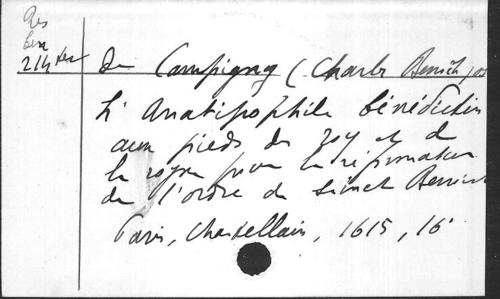 Rés
214 ter
Du Campigny (Charles Benoit
L'Anatipophile bénédictin
aux pieds du roy et de
la royne pour la réformation
de l'ordre de Sinct Benoist
Paris, Chastellain, 1615, 16°